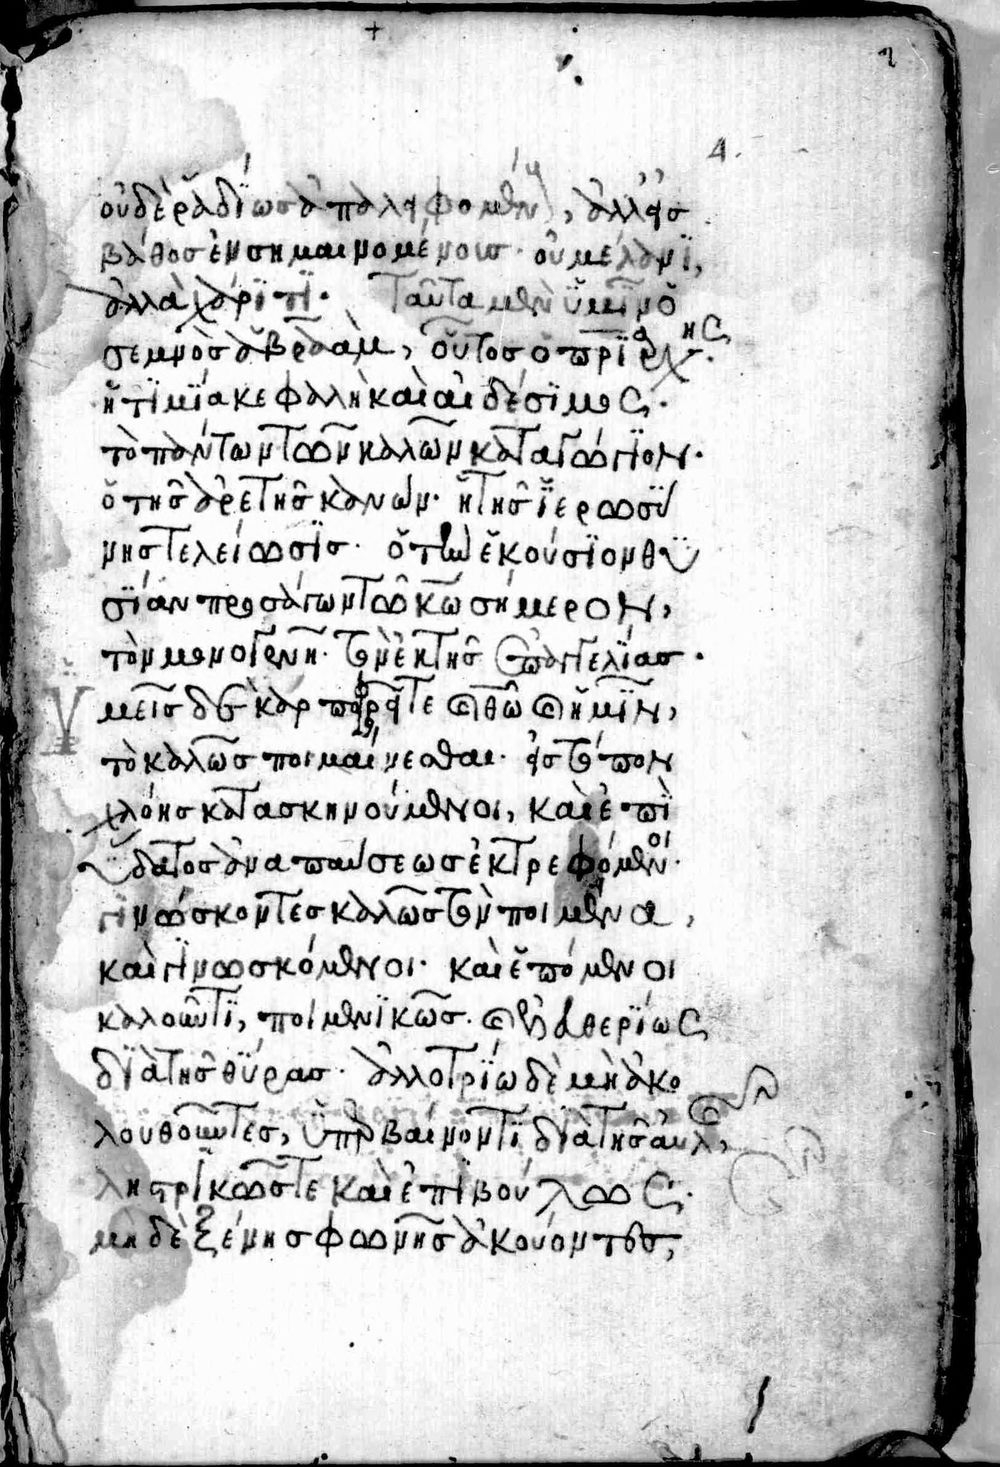 4.
οὐδὲ ῥαδίως ἀπαλειφομένην, ἀλλ' εἰς
βάθος ἐνσημαινομένοις· οὐ μέλανι,
ἀλλὰ χάριτι. Ταῦτα μὲν ὑμῖν ὁ
σεμνὸς ἀβραὰμ, οὗτος ὁ πριάρχης.
ἡ τιμία κεφαλὴ καὶ αἰδέσιμος.
τὸ πάντων τῶν καλῶν καταγώγιον.
ὁ τῆς ἀρετῆς κανών· ἡ τῆς ἱερωσύ
νης τελείωσις· ὁ τὴν ἑκούσιον θυ
σίαν προσάγων τῷ κω σήμερον,
τὸν μονογενῆ· τὸν ἐκ τῆς ἐπαγγελίας.
Ὑ
μεῖς δὲ καρποφορεῖτε καὶ θῶ καὶ ἡμῖν,
τὸ καλῶς ποιμαίνεσθαι· εἰς τόπον
χλόης κατασκηνούμενοι, καὶ ἐπὶ
ὕδατος ἀναπαύσεως ἐκτρεφόμενοι·
γινώσκοντες καλῶς τὸν ποιμένα,
καὶ γινωσκόμενοι· καὶ ἑπόμενοι
καλοῦντι, ποιμενικῶς καὶ ἐλευθερίως
διὰ τῆς θύρας· ἀλλοτρίω δὲ μὴ ἀκο
λουθοῦντες, ὑπερβαίνοντι διὰ τῆς αὐλ,
ληστρικῶς τε καὶ ἐπιβούλως·
μηδὲ ξένης φωνῆς ἀκούοντες,